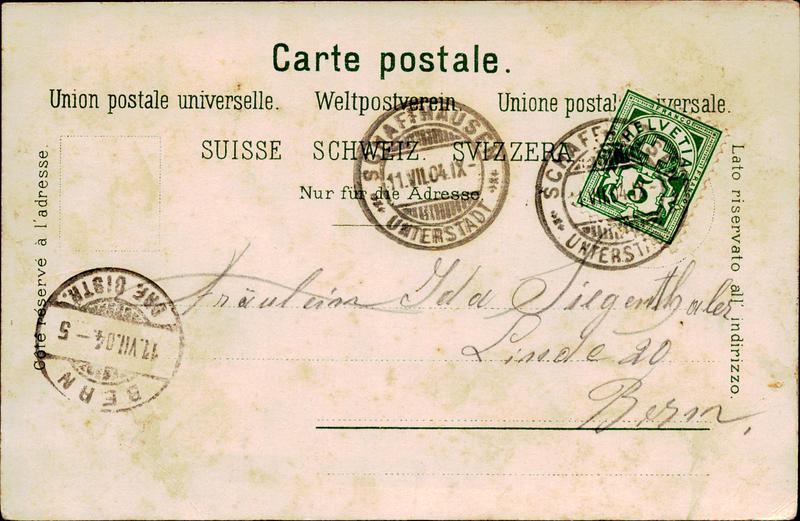 Carte postale.
Union postale universelle. Weltpostverein. Unione postale universale.
SUISSE SCHWEIZ. SVIZZERA
Nur für die Adresse.
Côté réservé à l'adresse.
Lato riservato all' indirizzo.
SCHAFFHAUSEN
11.VII.04.IX-
UNTERSTADT
SCHAFF
UNTERSTA
FRANCO
HELVETIA
5
Fräulein Ida Siegenthaler
Linde 20
Bern,
BRF. DISTR.
11.VII.04-5
BERN